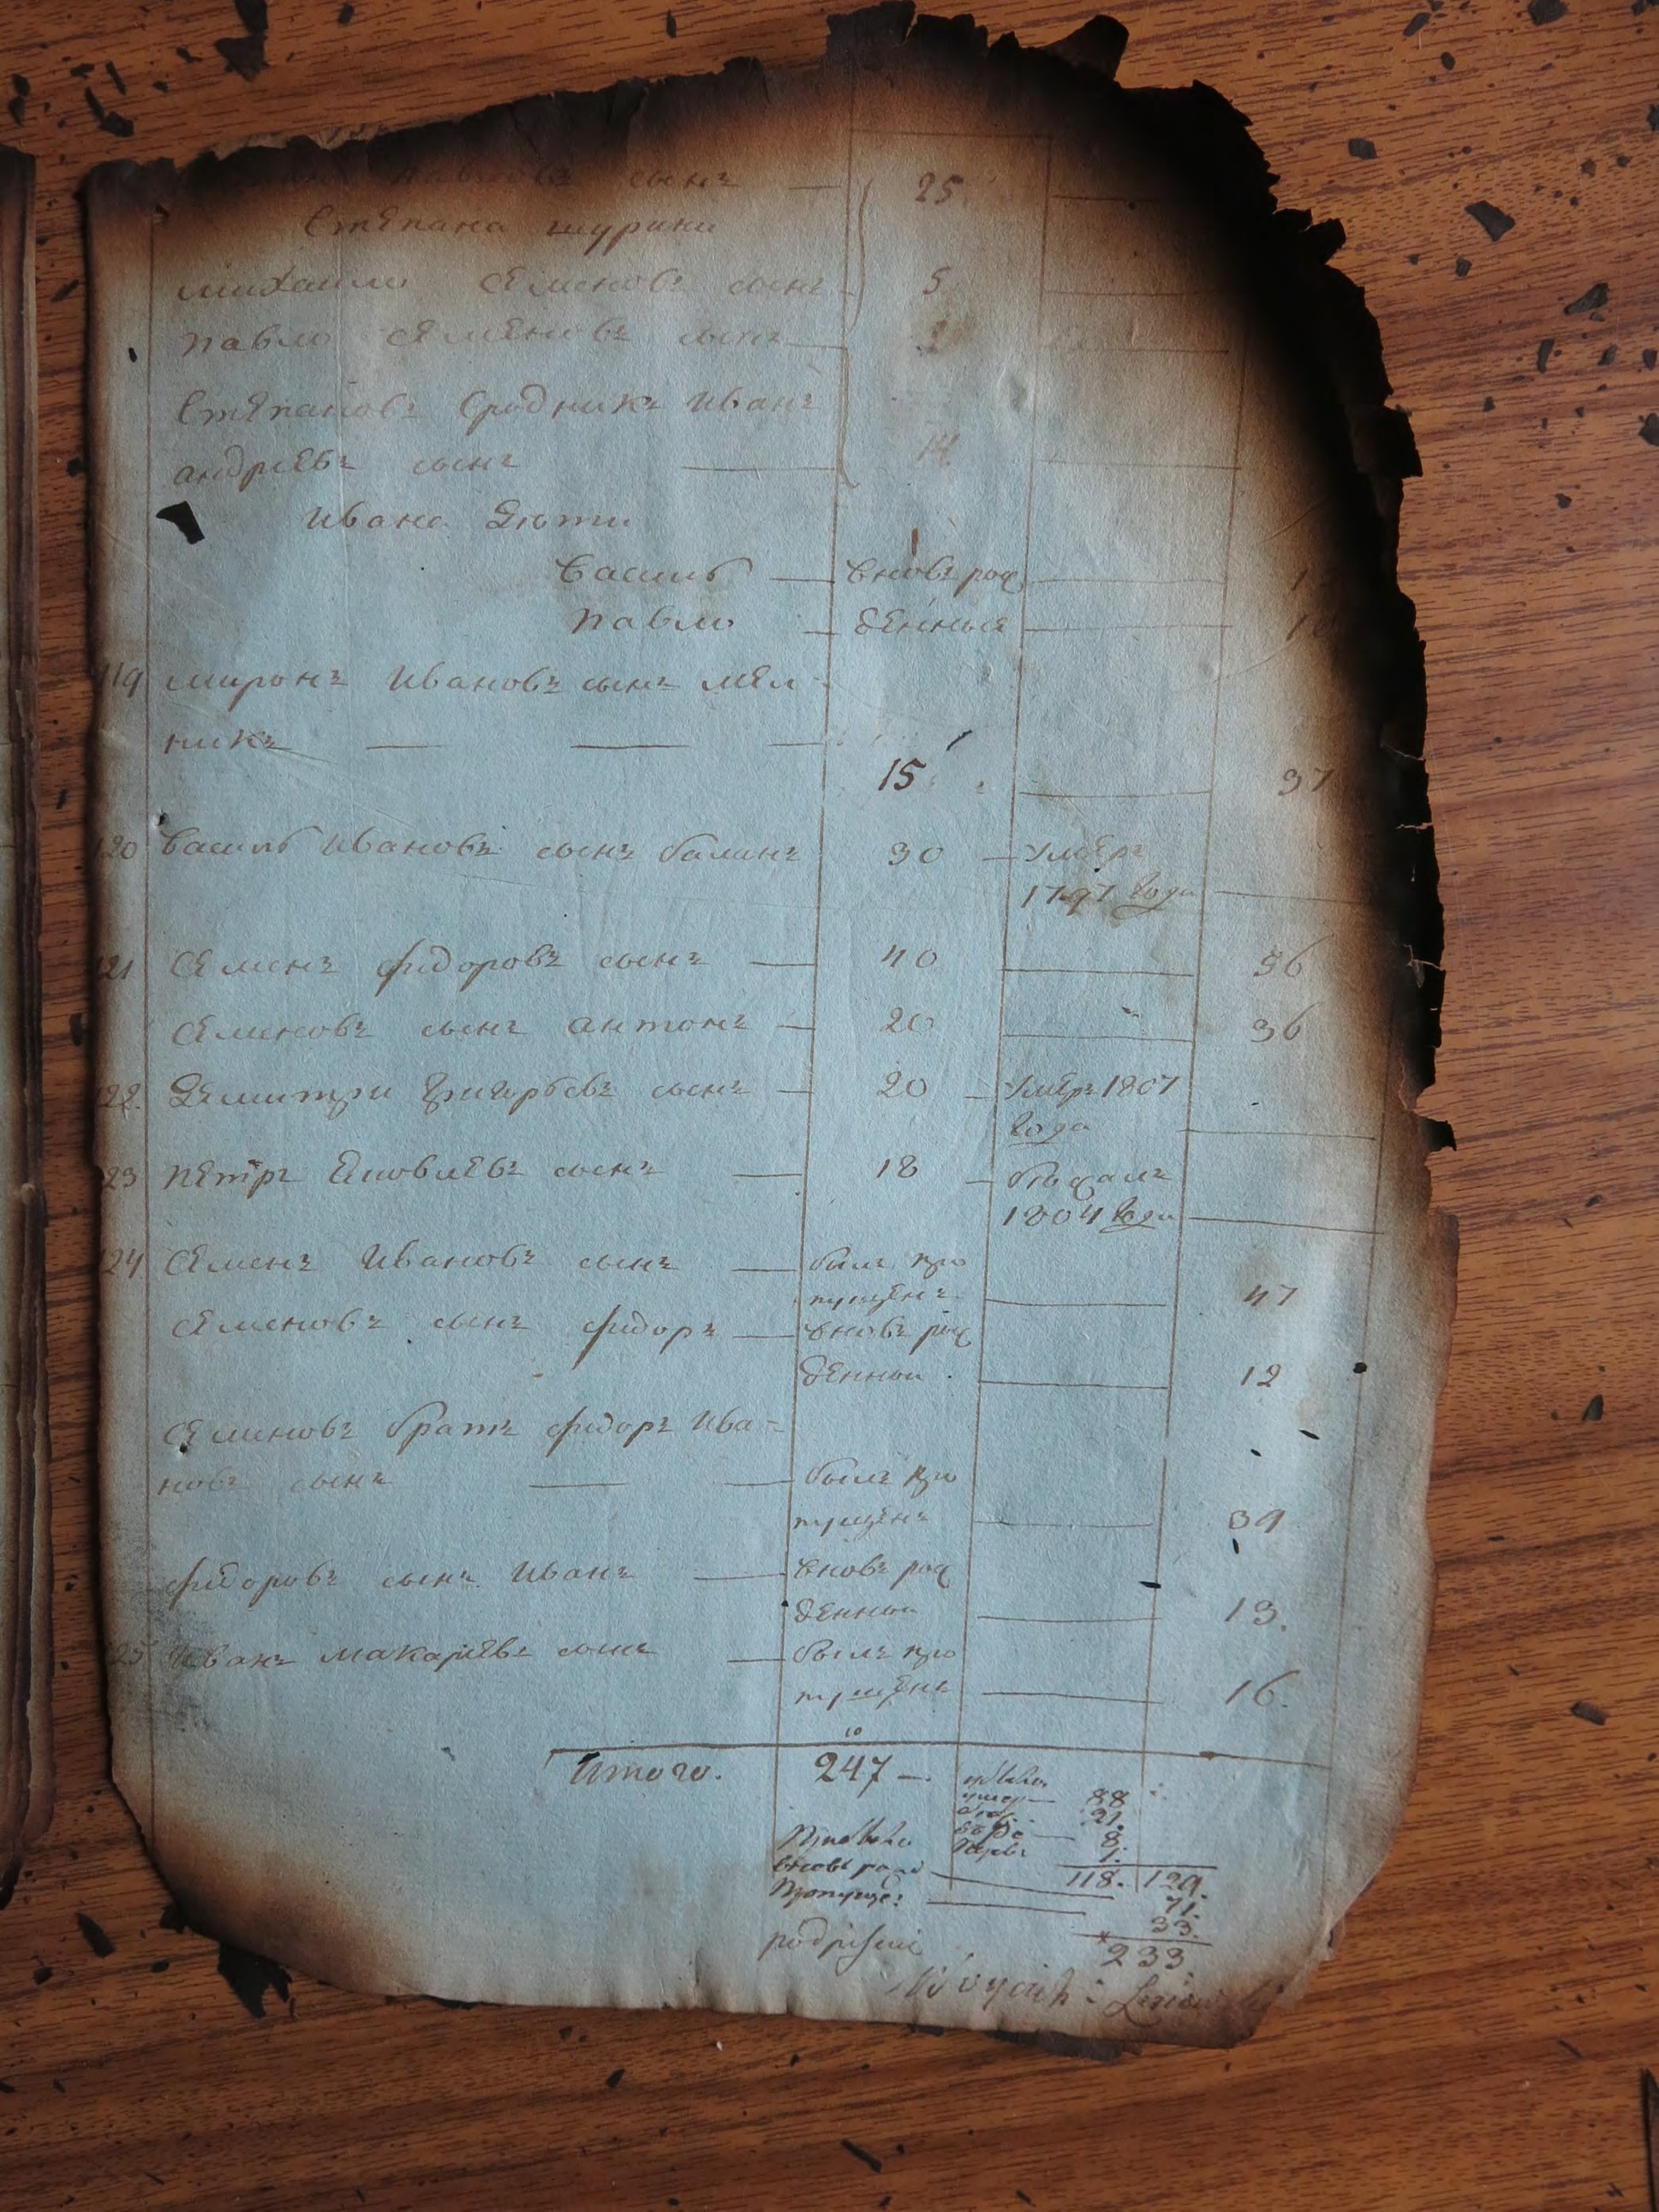 сынъ — 25 —
Степана шурини
михаило Семеновъ сынъ — 5 —
павло Семеновъ сынъ —
Степановъ Сродникъ Иванъ
андреевъ сынъ — 14 —
Ивана Дети
василь — вновь рож —
павло — денныя —
119 миронъ Ивановъ сынъ мел-
никъ — — —
15 — 37
120 василь Ивановъ сынъ — 30 — умеръ
1797 года —
121 Семенъ фидоровъ сынъ — 40 — 56
Семеновъ сынъ антонъ — 20 — 36
122. Демитри Григорьевъ сынъ — 20 — умеръ 1807
года —
123 петръ Яковлевъ сынъ — 18 —
1804 года —
124 Семенъ Ивановъ сынъ — былъ про
пущенъ — 47
Семеновъ сынъ фидоръ — вновь рож
денной — 12
Семеновъ братъ фидоръ Ива=
новъ сынъ — — былъ про
пущенъ — 39
фидоровъ сынъ Иванъ — вновь рож
денной — 13.
125 Иванъ макариевъ сынъ — былъ про
пущенъ — 16.
10
Итого. 247 —
88
21.
8
1.
вновь рожд — 118. 129.
Пропуще: — 71.
33.
233
podpisano
Woyciech